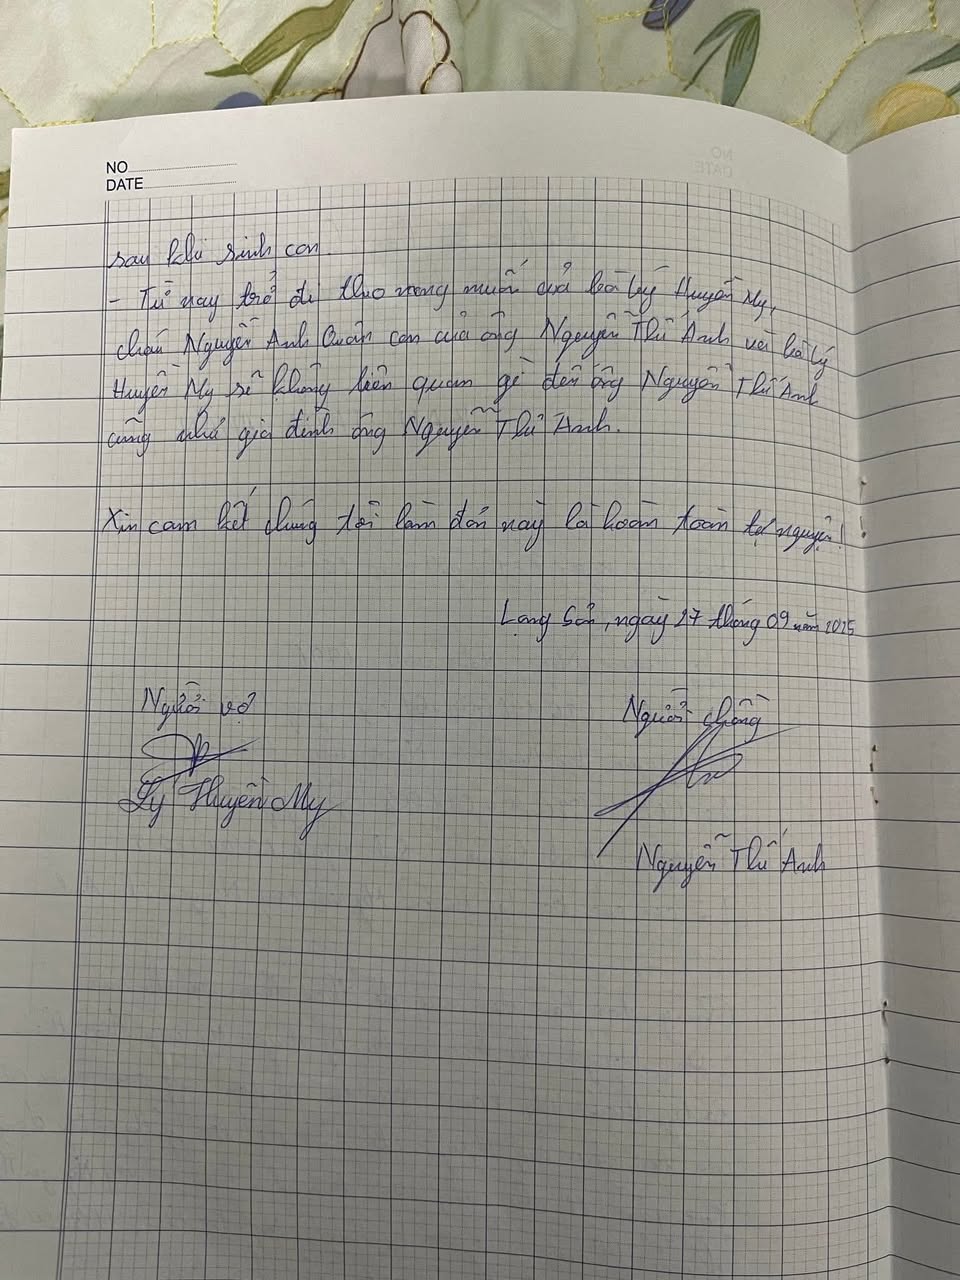 NO
DATE
sau khi sinh con.
- Từ nay trở đi theo mong muốn của bà Lý Huyền My,
cháu Nguyễn Anh Quân con của ông Nguyễn Thế Anh và bà Lý
Huyền My sẽ không liên quan gì đến ông Nguyễn Thế Anh
cũng như gia đình ông Nguyễn Thế Anh.
Xin cam kết chúng tôi làm đơn này là hoàn toàn tự nguyện!
Lạng Sơn, ngày 27 tháng 09 năm 2025
Người vợ
Người chồng
Lý Huyền My
Nguyễn Thế Anh